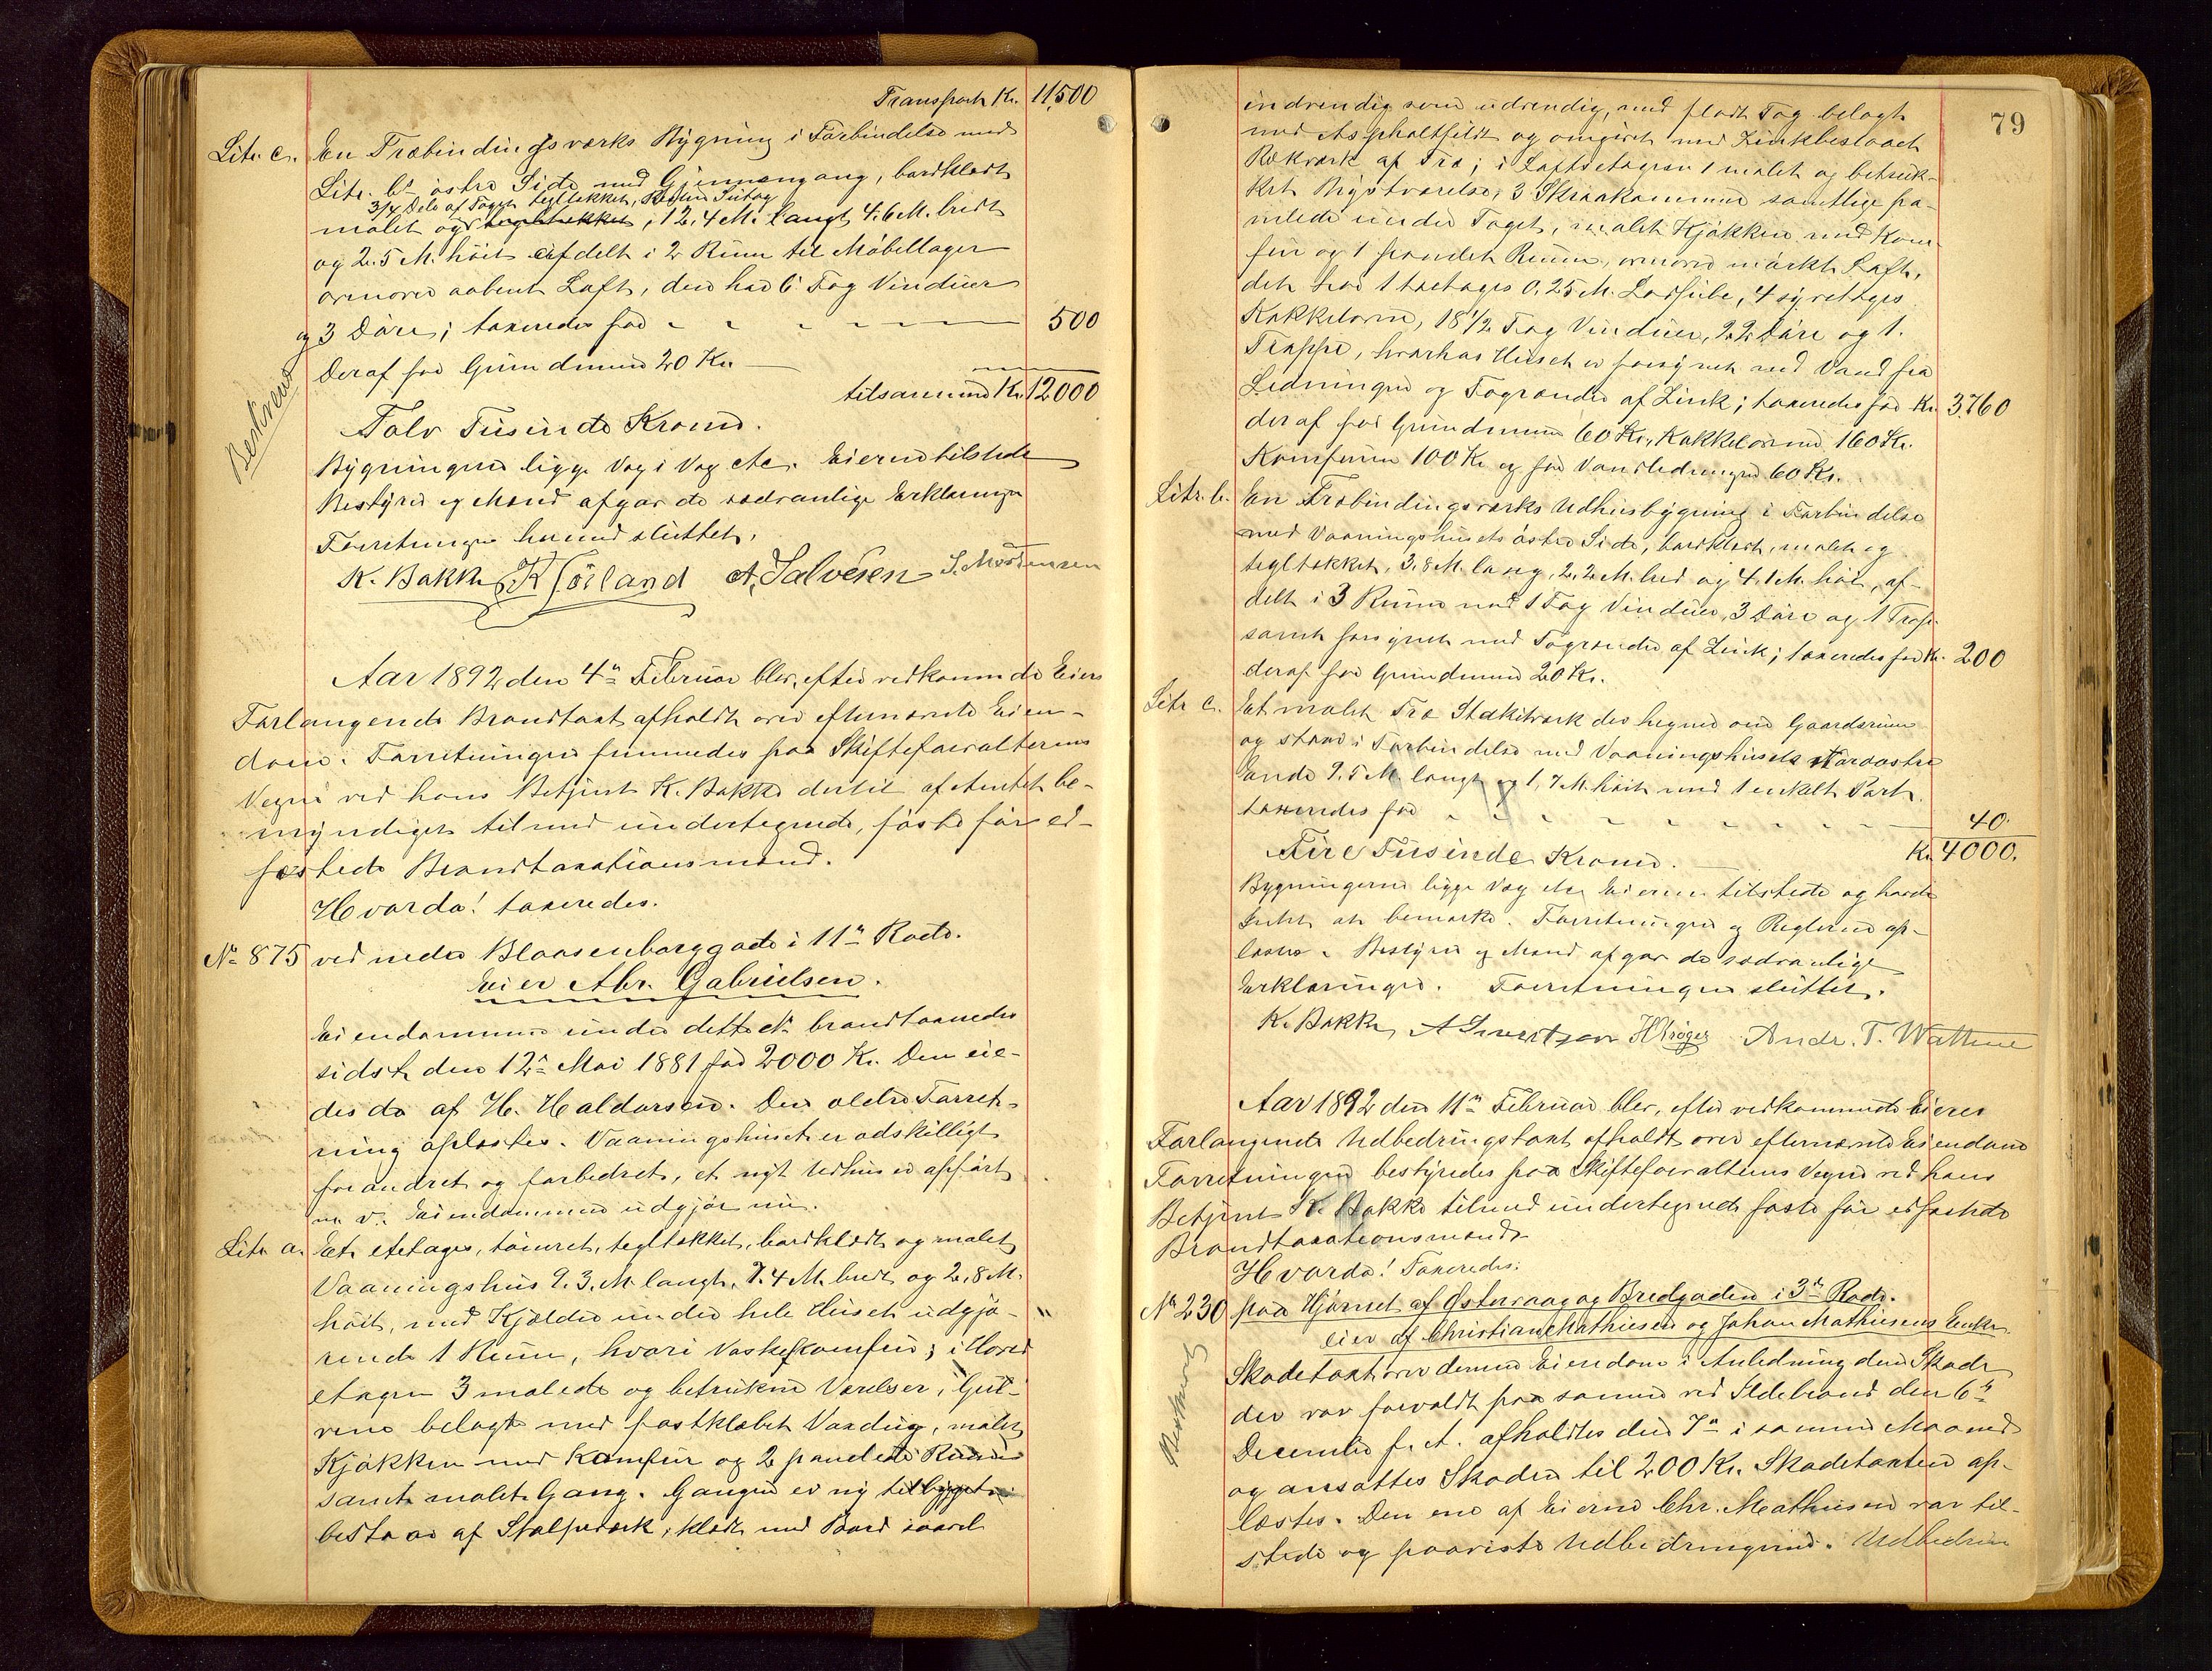 Transport Kr. 11,500
Litr. c. En Træbindingsværks Bygning i Forbindelse med
Litr. bs østre Side med Gjennemgang, bordklædt
3/4 Dele af Taget tegltækket, Resten
malet og tegltækket, 12,4 M. langt 4.6 M. bredt
og 2.5 M. høit afdelt i 2 Rum til Møbellager
ovenover aabent Loft, den har 6 Fag Vinduer
og 3 Døre; taxeredes for 500
Deraf for Grundmuren 20 Kr.
tilsammen Kr. 12000
Tolv Tusinde Kroner.
Beskrevet
Bygningerne ligge Væg i Væg etc. Eieren tilstede
Bestyrer og Mænd afgav de sædvanlige Erklæringer
Forretningen hermed sluttet.
K. Bakke K Sörland A. Salvesen S. Mortensen
Aar 1892 den 4de Februar blev, efter vedkommende Eiers
Forlangende Brandtaxt afholdt over efternævnte Eien-
dom. Forretningen fremmedes paa Skifteforvalterens
Vegne ved hans Betjent K. Bakke dertil af Amtet be-
myndiget tilmed undertegnede, faste før ed-
fæstede Brandtaxationsmænd.
Hvorda! taxeredes.
No 875 ved nedre Blaasenborggade i 11te Rode.
Eier Abr. Gabrielsen.
Eiendommen under dette No brandtaxeredes
sidst den 12te Mai 1881 for 2000 Kr. Den eie-
des da af H. Haldorsen. Den ældre Forret-
ning oplæstes. Vaaningshuset er adskilligt
forandret og forbedret, et nyt Udhus er opført
m. v. Eiendommen udgjør nu.
Litr a. Et etetages, tømret, tegltækket, bordklædt og malet
Vaaningshus 9.3 M. langt, 7.4 M. bredt og 2,8 M.
høit, med Kjelder under hele Huset udgjø-
rende 1 Rum, hvori Vaskekomfur; i Hoved
etagen 3 malede og betrukne Værelser, Gul-
vene belagt med fastklæbet Voxdug, malet
Kjøkken med Komfur og 2 panelede Rum
samt malet Gang. Gangen er ny tilbygget
bestaar af Stolpeværk, klædt med Bord saavel
79
indvendig som udvendig, med fladt Tag belagt
med Asphaltfildt og omgivet med Zinkbeslaaet
Rækværk af Træ; i Loftsetagen 1 malet og betruk-
ket Brystværelse, 3 Skraakammere samtlige pa-
nelede under Taget, malet Kjøkken med Kom-
fur og 1 panelet Rum, ovenover mørkt Loft,
det har 1 toetages 0,25 M. Lodpibe, 4
Kakkelovne, 18 1/2 Fag Vinduer, 22 Døre og 1
Trappe, hvorhos Huset er forsynet med Vand fra
Ledningen og Tagrender af Zink; taxeredes for Kr. 3760
deraf for Grundmuren 60 Kr., Kakkelovnene 160 Kr.
Komfurene 100 Kr. og for Vandledningen 60 Kr.
Litr. b. En Træbindingsværks Udhusbygning i Forbindelse
med Vaaningshusets østre Side, bordklædt, malet og
tegltækket, 3,8 M. lang, 2,2 M. bred og 4,1 M. høi, af-
delt i 3 Rum med 1 Fag Vinduer, 3 Døre og 1 Trap.
samt forsynet med Tagrender af Zink; taxeredes for Kr. 200
deraf for Grundmuren 20 Kr.
Litr c. Et malet Træ Stakitværk der hegner om Gaardsrum
og staar i Forbindelse med Vaaningshusets Nordøstre
Ende 9.5 M. langt og 1,7 M. høit med 1 enkelt Port
taxeredes for 40.
Fire Tusinde Kroner. Kr. 4000.
Bygningerne ligge Væg etc. Eieren tilstede og havde
Intet at bemærke. Forretningen og Reglerne op-
læstes. Bestyrer og Mænd afgav de sædvanlige
Erklæringer. Forretningen sluttet.
K. Bakke, A Sivertsen H Krøger Andr. T. Wattne
Aar 1892 den 11te Februar blev, efter vedkommende Eieres
Forlangende Udbedringstaxt afholdt over efternævnte Eiendom
Forretningen bestyredes paa Skifteforvalterens Vegne ved hans
Betjent K. Bakke tilmed undertegnede faste før edfæstede
Brandtaxationsmænd.
Hvorda! Taxeredes:
No 230 paa Hjørnet af Østervaag og Bredgaden i 3de Rode.
eier af Christian Mathiesen og Johan Mathiesens Enke.
Beskrevet
Skadetaxt over denne Eiendom i Anledning den Skade
der var forvoldt paa samme ved Ildebrand den 6te
December f. A. afholdtes den 7de i samme Maaned
og ansattes Skaden til 200 Kr. Skadetaxten op-
læstes. Den ene af Eierne Chr. Mathiesen var til-
stede og paaviste Udbedringerne. Udbedrin